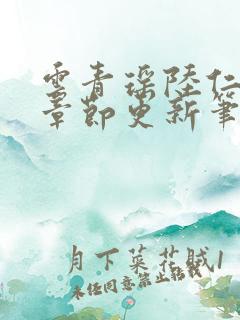 云青瑶陆仁
章节更新笔
月下菜花贼1
未经同意禁止转载